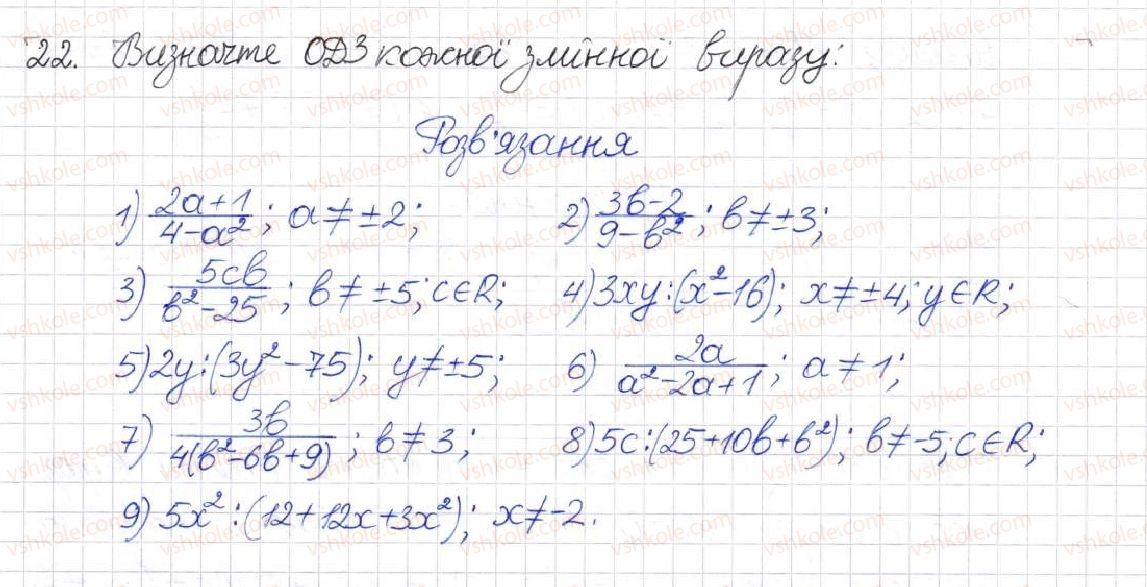 22. Визначте ОДЗ кожної змінної виразу:
Розв'язання
1) (2a+1)/(4-a²); a≠±2; 2) (3b-2)/(9-b²); b≠±3;
3) 5cb/(b²-25); b≠±5; c∈R; 4) 3xy:(x²-16); x≠±4; y∈R;
5) 2y:(3y²-75); y≠±5; 6) 2a/(a²-2a+1); a≠1;
7) 3b/(4(b²-6b+9)); b≠3; 8) 5c:(25+10b+b²); b≠-5; c∈R;
9) 5x²:(12+12x+3x²); x≠-2.